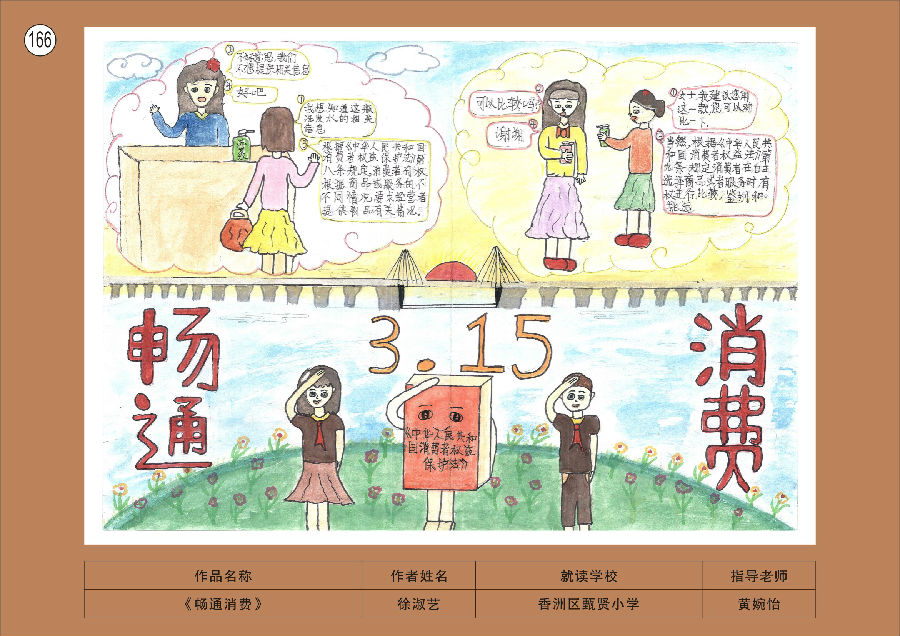 166
①
不好意思,我们
不需提供相关信息
④
好吧
①
我想知道这瓶
洗发水的相关
信息
③
根据《中华人民共和国
消费者权益保护法》第
八条规定,消费者有权
根据商品或服务的不
不同情况,要求经营者
提供商品有关情况。
②
可以比较吗?
④
谢谢
①
女士,我建议您用
这一款,您可以对
比一下。
③
当然,根据《中华人民共
和国消费者权益法》第
九条规定消费者在自主
选择商品或者服务时,有
权进行比较,鉴别和
挑选
3.15
畅通
消费
《中华人民共和
国消费者权益
保护法》
作品名称 作者姓名 就读学校 指导老师
《畅通消费》 徐淑艺 香洲区甄贤小学 黄婉怡